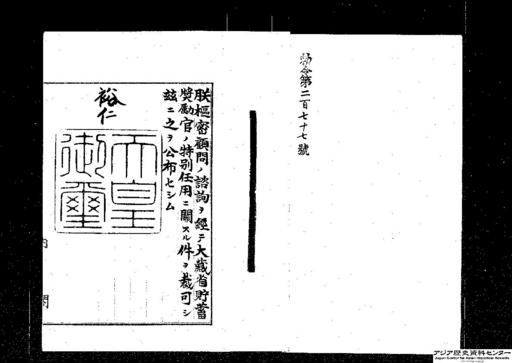 勅令第二百七十七號
朕樞密顧問ノ諮詢ヲ經テ大藏省貯蓄
奬勵官ノ特別任用ニ關スル件ヲ裁可シ
玆ニ之ヲ公布セシム
裕仁
天皇
御璽
内閣
アジア歴史資料センター
Japan Center for Asian Historical Records